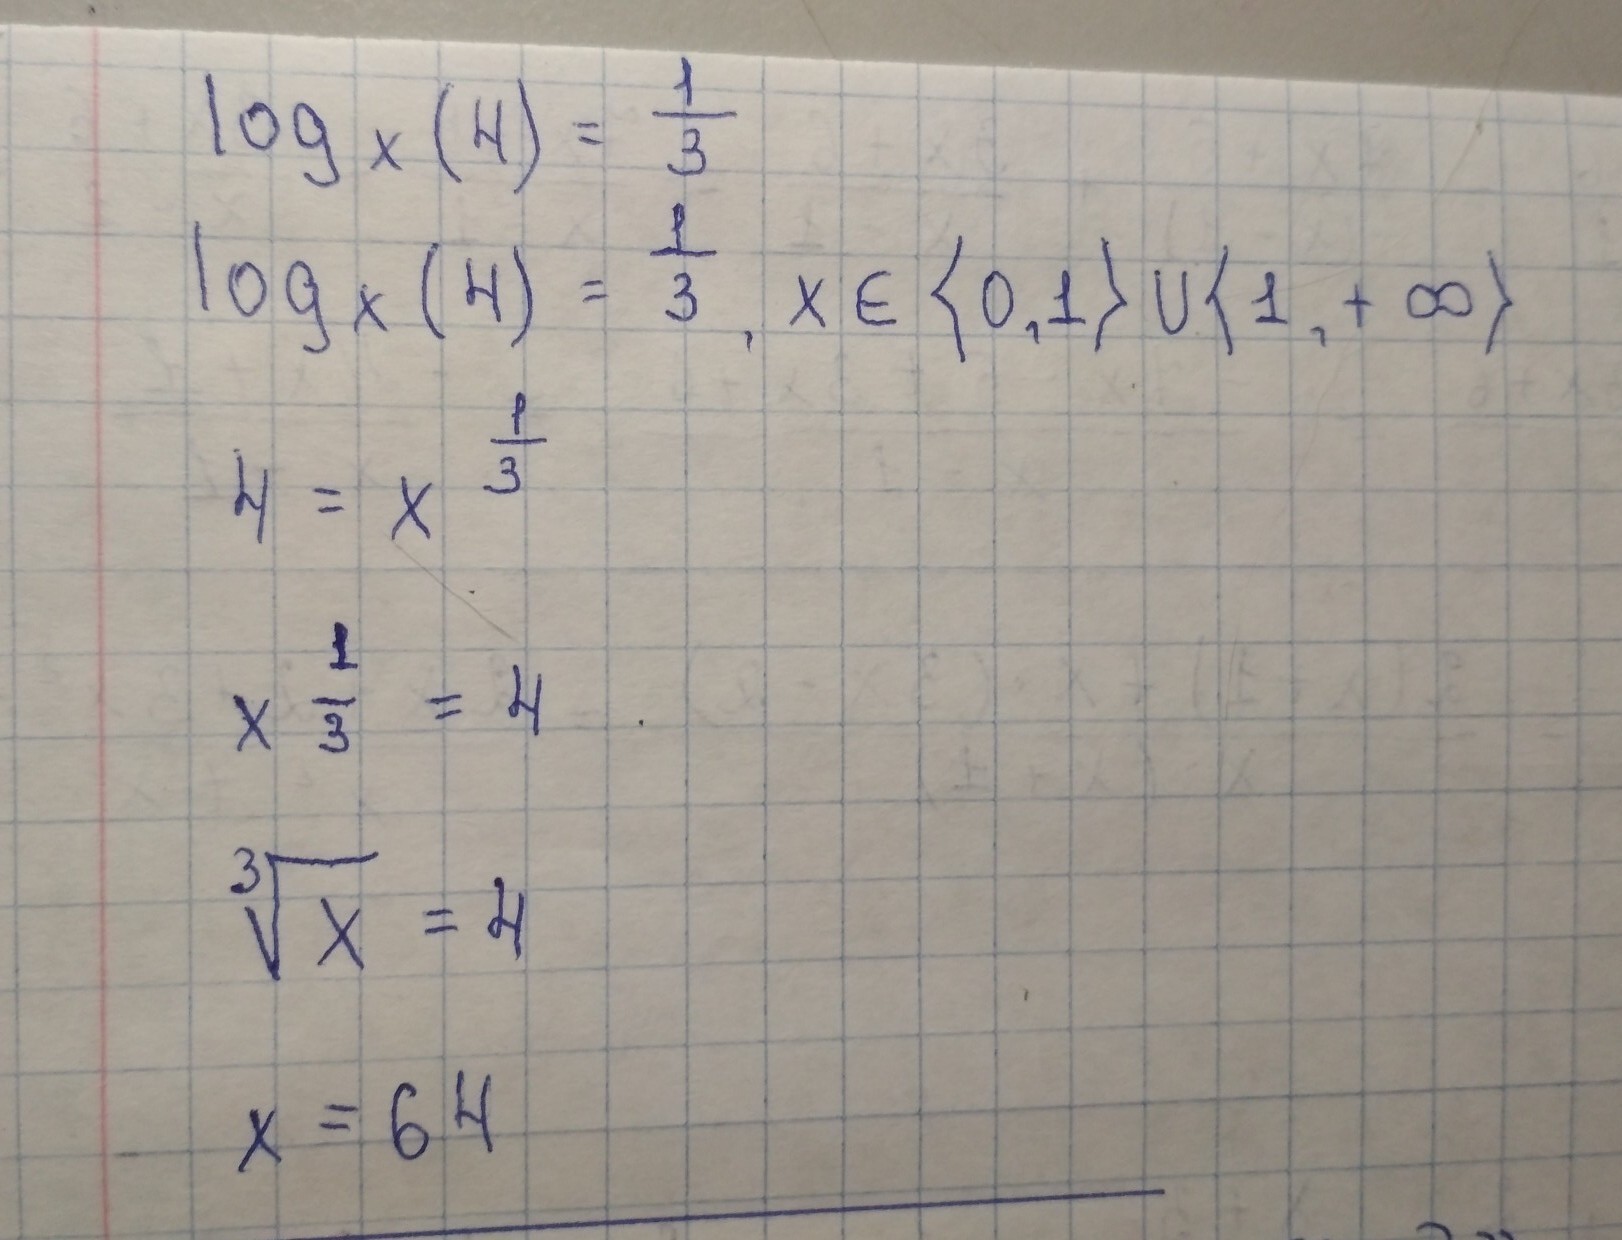 log x (4) = 1/3
log x (4) = 1/3, x ∈ ⟨0,1⟩ ∪ ⟨1, + ∞⟩
4 = x^(1/3)
x^(1/3) = 4
∛x = 4
x = 64